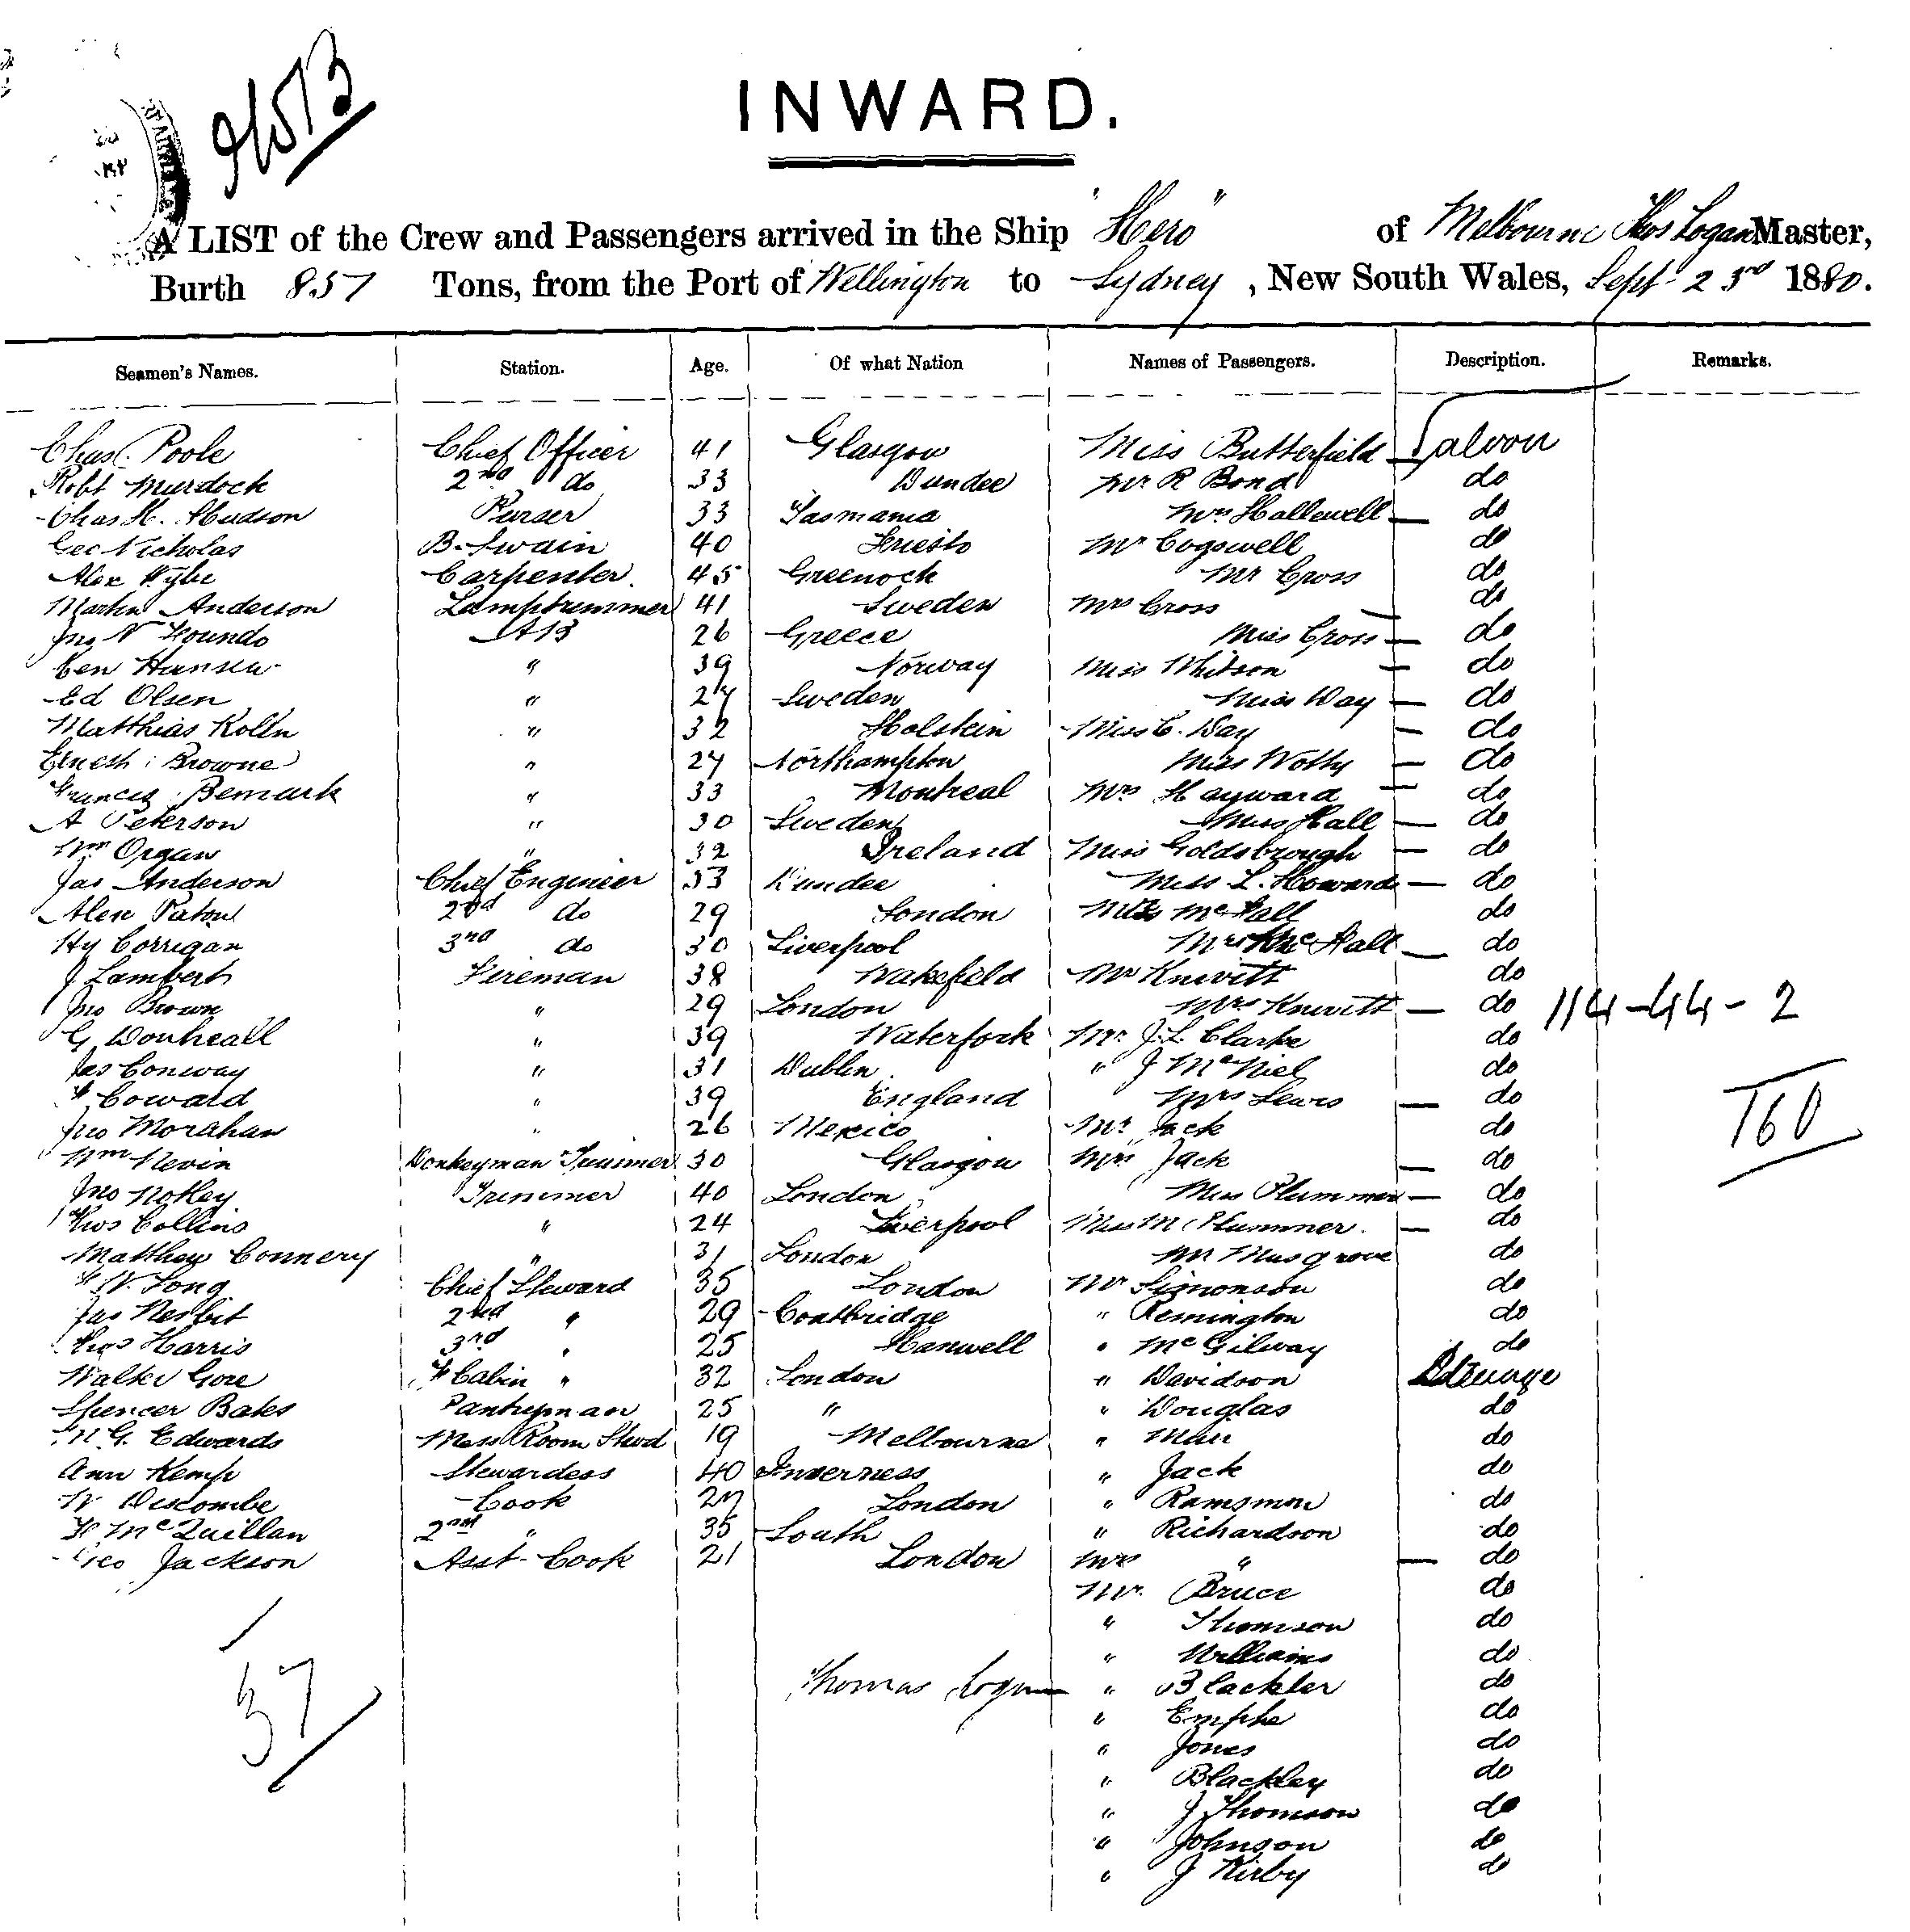 9/573
INWARD.
A LIST of the Crew and Passengers arrived in the Ship "Hero" of Melbourne Thos Logan Master,
Burth 857 Tons, from the Port of Wellington to Sydney, New South Wales, Sept 23rd 1880.
Seamen's Names. Station. Age. Of what Nation Names of Passengers. Description. Remarks.
Chas. Poole Chief Officer 41 Glasgow Miss Butterfield — Saloon
Robt Murdock 2nd do 33 Dundee Mr R Bond do
Chas H. Hudson Purser 33 Tasmania Mrs Hallewell — do
Geo Nicholas B. Swain 40 Mr Cogswell do
Alex Wylie Carpenter. 45 Greenock Mr Cross do
Martin Anderson Lamptrimmer 41 Sweden Mrs Cross — do
Jno N AB 26 Greece Miss Cross — do
Hansen " 39 Norway Miss Whitson — do
Ed Olsen " 27 Sweden Miss Way — do
Matthias Kolln " 32 Holstein Miss C. Way — do
Ernest Browne " 27 Northampton Miss — do
Frances Bemark " 33 Montreal Mrs Hayward — do
A Peterson " 30 Sweden Miss Hall — do
Wm Organ " 32 Ireland Miss Goldsbrough — do
Jas Anderson Chief Engineer 33 Dundee Miss L. Howard — do
Alex Paton 2nd do 29 London do
Hy Corrigan 3rd do 30 Liverpool Hall — do
J Lambert Fireman 38 Wakefield Mr Knivett do
Jno Brown " 29 London Mrs Knivett — do 114-44-2
G " 39 Waterfork Mr J. L. Clarke do
Jas Conway " 31 Dublin " J McNiel do
Coward " 39 England Mrs Lewis — do
Jno Morahan " 26 Mexico Mr Jack do 160
Wm Nevin Donkeyman Trimmer 30 Glasgow Mrs Jack — do
Jno Notley Trimmer 40 London Miss Plummer — do
Thos Collins " 24 Liverpool Miss M Plummer. — do
Matthew Connery " 31 London Mr Musgrove do
W. Long Chief Steward 35 London Mr Simonson do
Jas Nesbit 2nd " 29 Coatbridge " Remington do
Thos Harris 3rd " 25 Hanwell " McGilway do
Walter Gore Cabin " 32 London " Davidson Steerage
Spencer Bates Pantryman 25 " " Douglas do
G. Edwards Mess Room Stwd 19 Melbourne " do
Ann Kemp Stewardess 40 Inverness " Jack do
W Discombe Cook 27 London " Ramsmon do
McQuillan 2nd " 35 South " Richardson do
Geo Jackson Asst Cook 21 London Mrs " — do
Mr. Bruce do
" Thomson do
" Williams do
37
Thomas Logan " Blackler do
" do
" Jones do
" Blackley do
" J Thomson do
" Johnson do
" J Kirby do